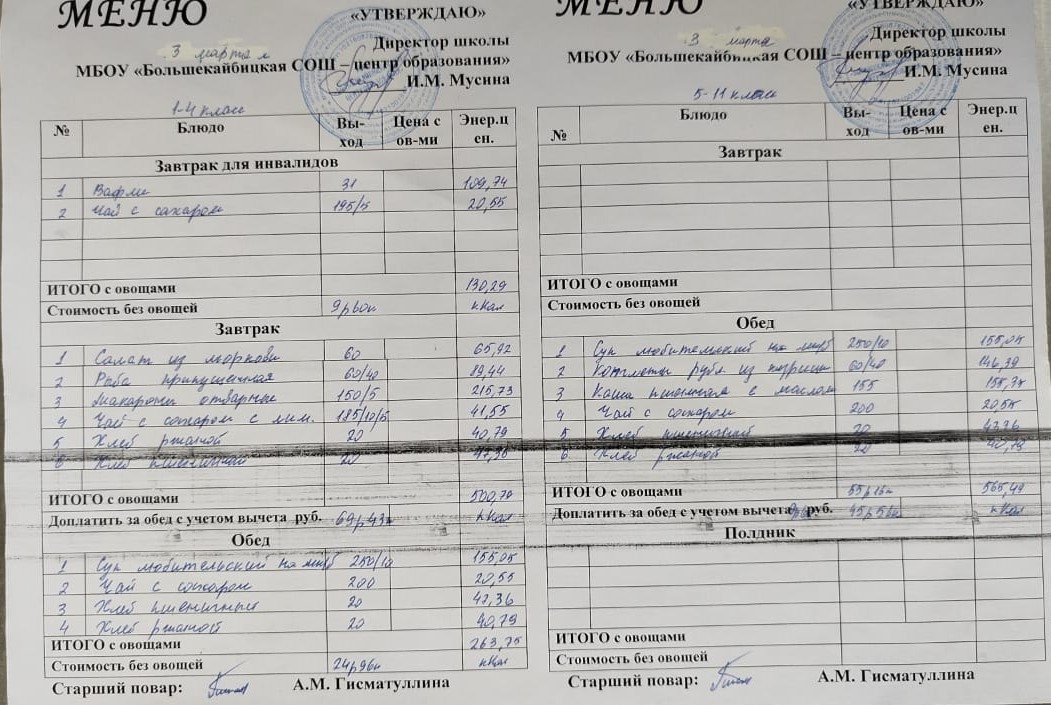 МЕНЮ
«УТВЕРЖДАЮ»
3 марта
Директор школы
МБОУ «Большекайбицкая СОШ – центр образования»
И.М. Мусина
1-4 класс
№ Блюдо Вы-ход Цена с ов-ми Энер.ц ен.
Завтрак для инвалидов
1 Вафли 31 109,74
2 Чай с сахаром 195/5 20,55
ИТОГО с овощами 130,29
Стоимость без овощей 9р60к кКал
Завтрак
1 Салат из моркови 60 65,92
2 Рыба припущенная 60/40 89,44
3 Макароны отварные 150/5 215,73
4 Чай с сахаром с лим. 185/10/5 41,55
5 Хлеб ржаной 20 40,79
6 Хлеб пшеничный 20 47,36
ИТОГО с овощами 500,79
Доплатить за обед с учетом вычета руб. 69р43к кКал
Обед
1 Суп любительский на м/б 250/10 155,05
2 Чай с сахаром 200 20,55
3 Хлеб пшеничный 20 47,36
4 Хлеб ржаной 20 40,79
ИТОГО с овощами 263,75
Стоимость без овощей 24р96к кКал
Старший повар: А.М. Гисматуллина
МЕНЮ
«УТВЕРЖДАЮ»
3 марта
Директор школы
МБОУ «Большекайбицкая СОШ – центр образования»
И.М. Мусина
5-11 класс
№ Блюдо Вы-ход Цена с ов-ми Энер.ц ен.
Завтрак
ИТОГО с овощами
Стоимость без овощей
Обед
1 Суп любительский на м/б 250/10 155,05
2 Котлеты руб. из курицы 60/40 146,39
3 Каша пшенная с маслом 155
4 Чай с сахаром 200 20,55
5 Хлеб пшеничный 20 47,36
6 Хлеб ржаной 20 40,79
ИТОГО с овощами 55р16к 565,49
Доплатить за обед с учетом вычета руб. 45р56к кКал
Полдник
ИТОГО с овощами
Стоимость без овощей
Старший повар: А.М. Гисматуллина